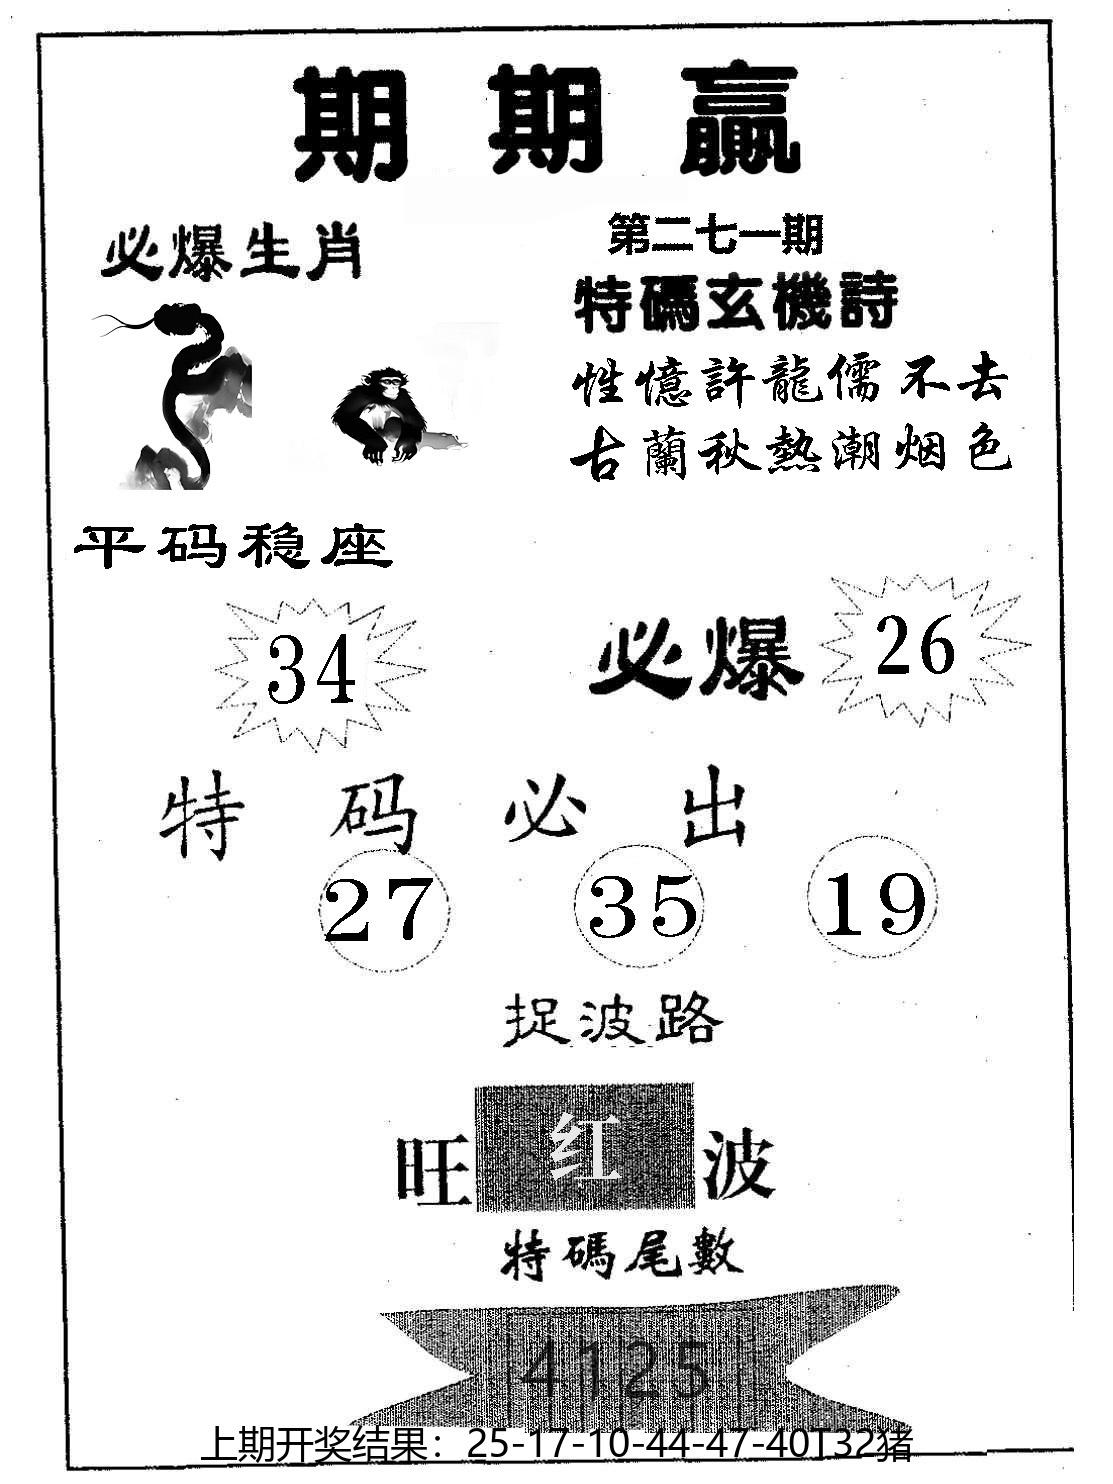 期期贏
必爆生肖
第二七一期
特碼玄機詩
性憶許龍儒不去
古蘭秋熱潮烟色
平码稳座
34
必爆
26
特码必出
27 35 19
捉波路
旺红波
特碼尾數
4125
上期开奖结果：25-17-10-44-47-40T32猪